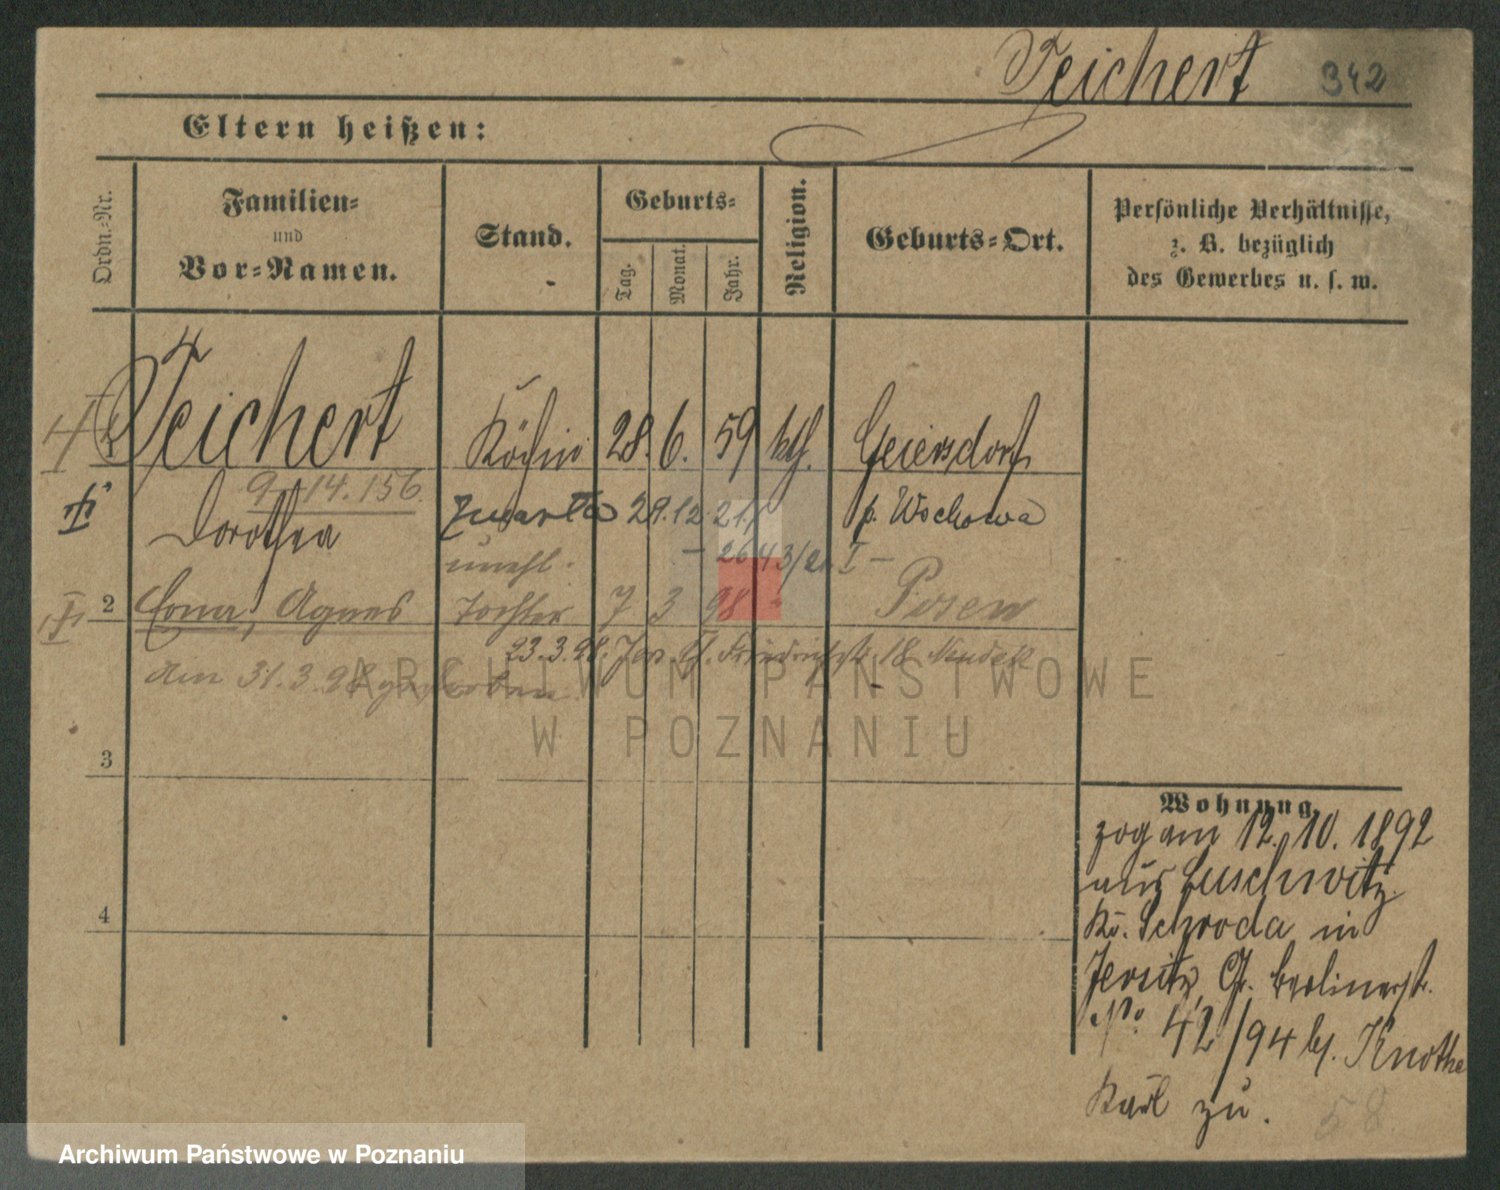 Teichert 342
Eltern heißen:
Ordn.-Nr.
Familien-
und
Vor-Namen.
Stand.
Geburts-
Tag.
Monat.
Jahr.
Religion.
Geburts-Ort.
Persönliche Verhältnisse,
z. B. bezüglich
des Gewerbes u. s. w.
1 Teichert Köchin 28. 6. 59 kth. Geiersdorf
9. 14. 156.
Dorothea 29. 12 21. p. Wschowa
unehl.
2 Erna, Agnes Tochter 7 3 98 " Posen
23. 3. 98. 18
am 31. 3. 98 gestorben
ARCHIWUM PAŃSTWOWE
W POZNANIU
3
4
Wohnung
zog am 12. 10. 1892
aus Luschwitz
Kr. Schroda in
Jersitz, Gr. Berlinerst.
No. 42/94 bei Knothe
Karl zu.
58.
Archiwum Państwowe w Poznaniu